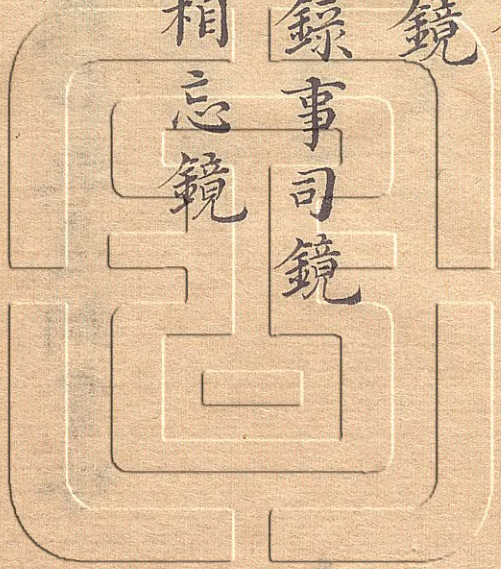 鏡
錄事司鏡
相忘鏡